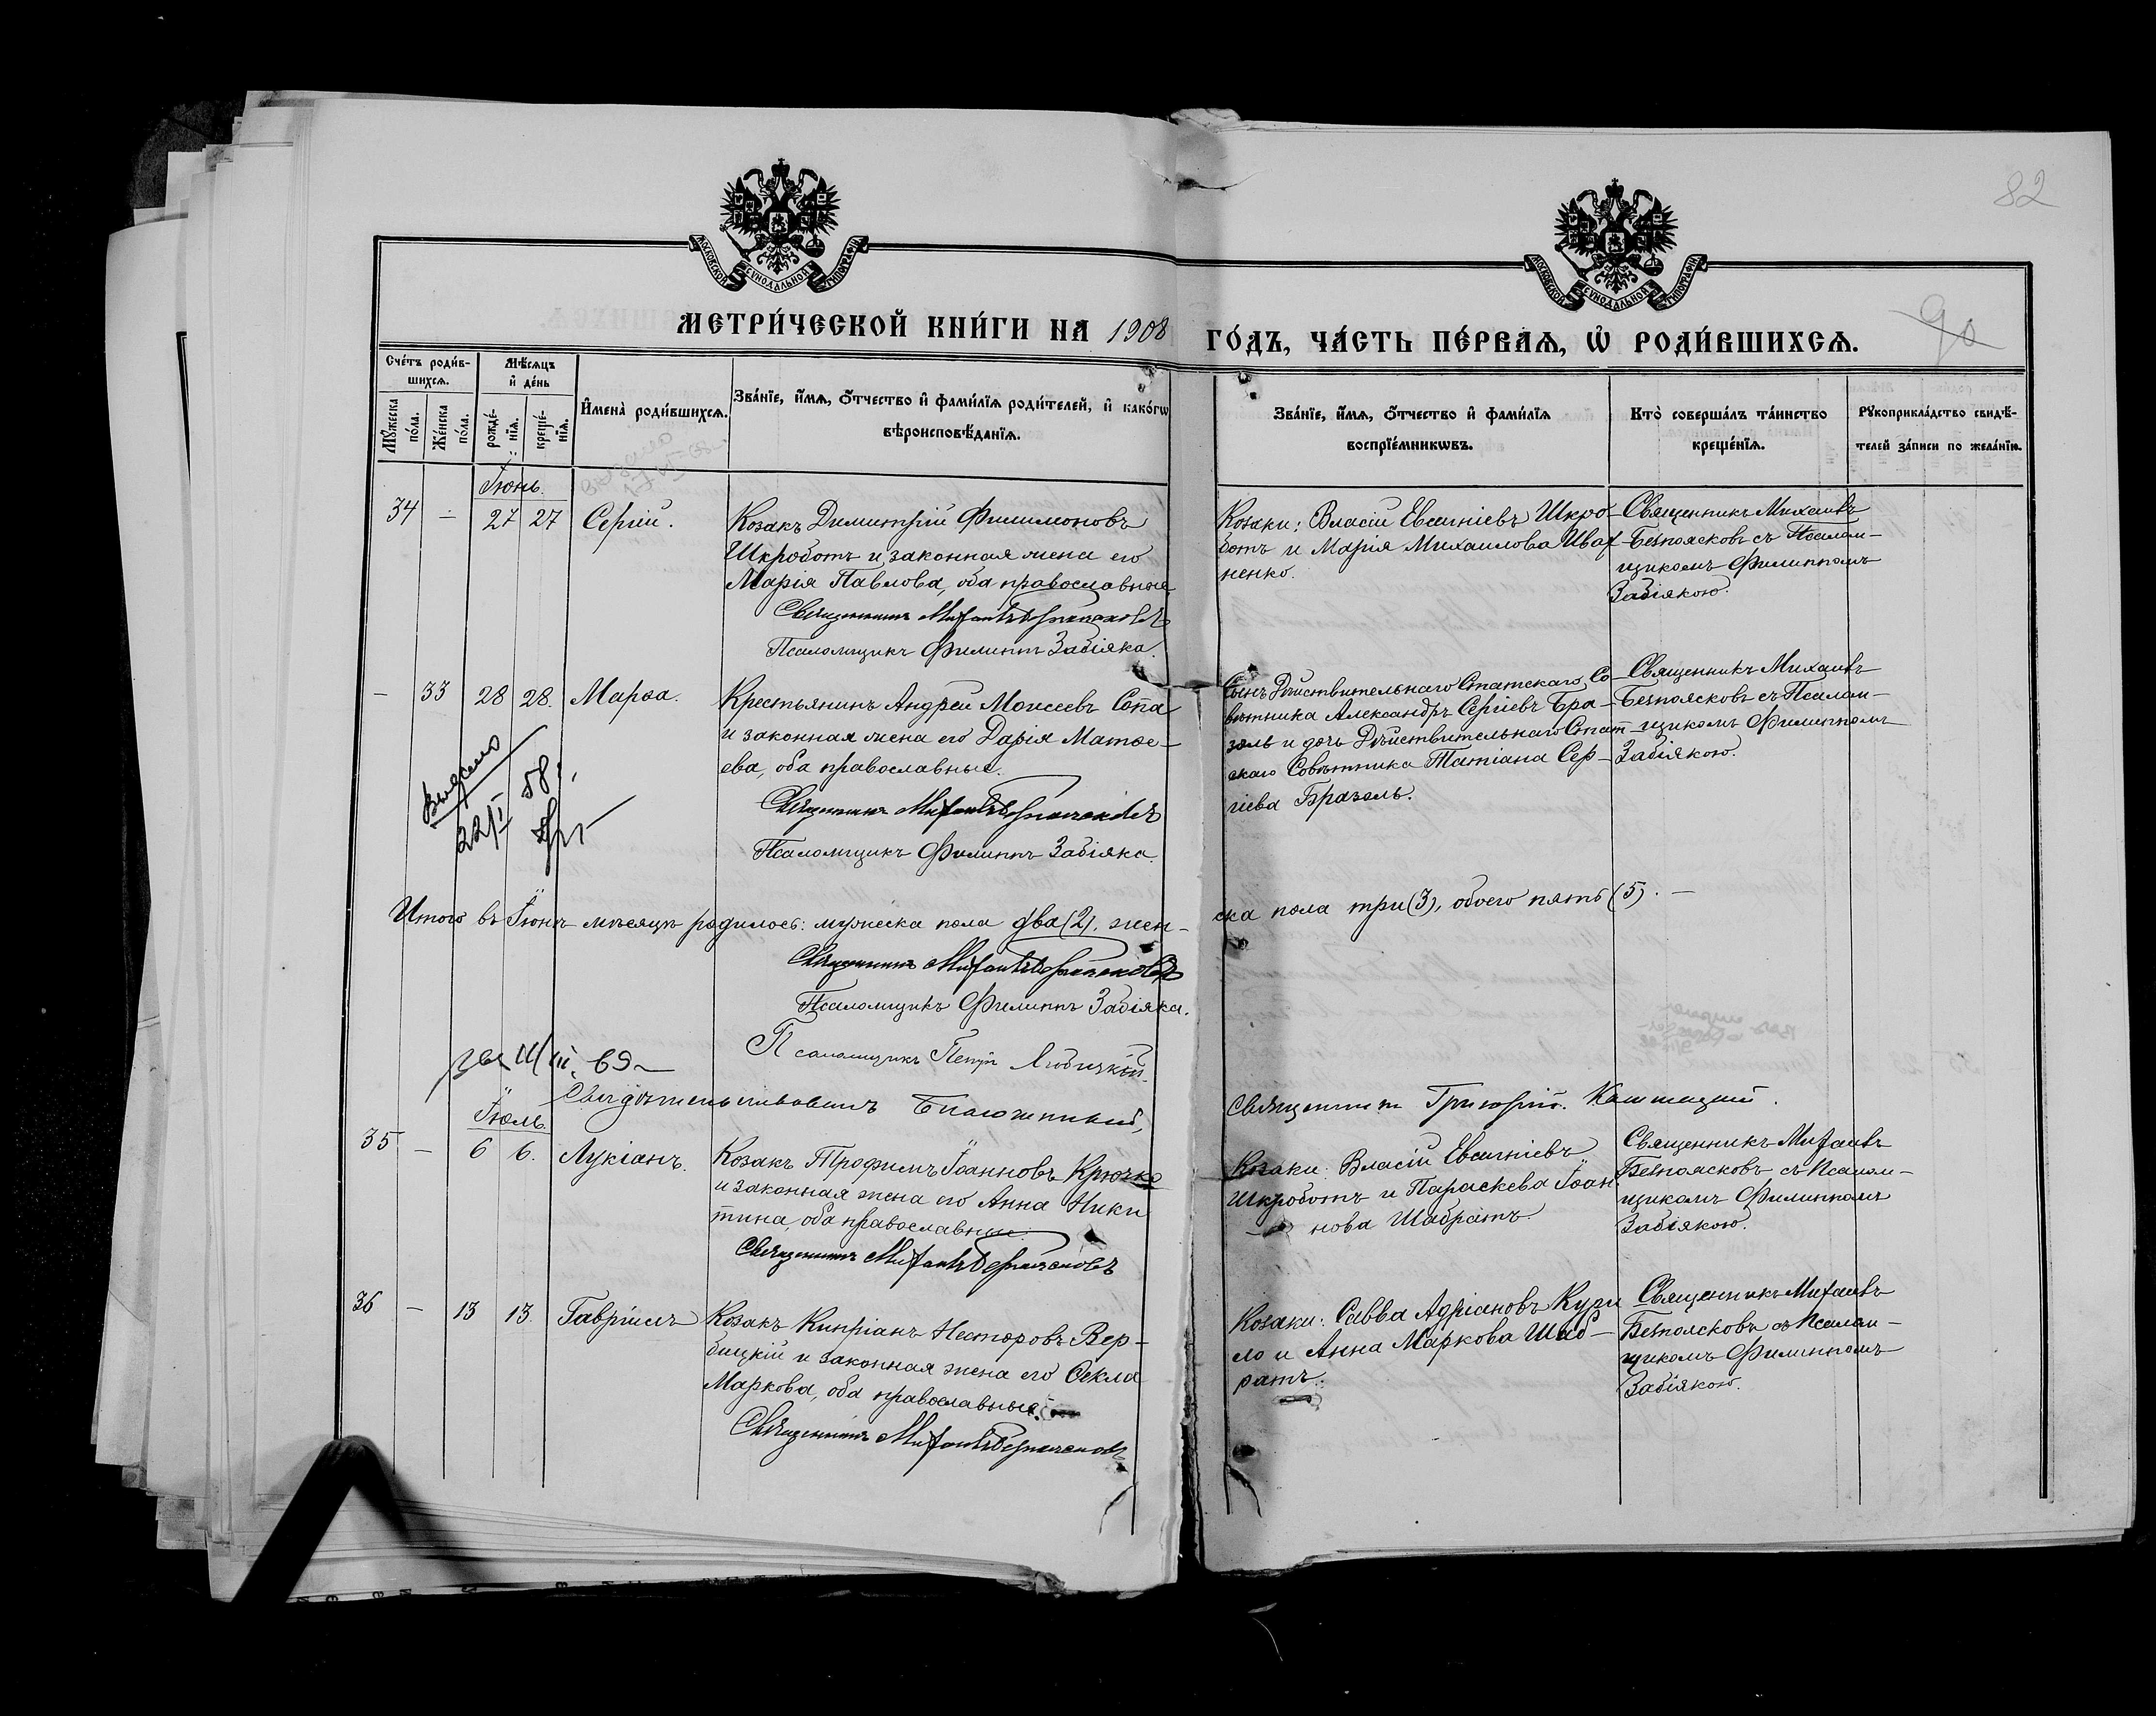 82
МОСКОВСКОЙ СѴНОДАЛЬНОЙ ТИПОГРАФІИ
МОСКОВСКОЙ СѴНОДАЛЬНОЙ ТИПОГРАФІИ
МЕТРИ́ЧЕСКОЙ КНИ́ГИ НА 1908 ГО́ДЪ, ЧА́СТЬ ПЕ́РВАЯ, Ѡ҆ РОДИ́ВШИХСѦ.
90
Сче́тъ роди́в-
шихсѧ.
Мꙋ́жеска по́ла.
Же́нска по́ла.
Мѣ́сѧцъ
и҆ де́нь
рожде́-
нїѧ.
креще́-
нїѧ.
И҆мена̀ роди́вшихсѧ.
Зва́нїе, и҆́мѧ, ѻ҆́тчество и҆ фами́лїѧ роди́телей, и҆ како́гѡ
вѣроисповѣ́данїѧ.
Зва́нїе, и҆́мѧ, ѻ҆́тчество и҆ фами́лїѧ
воспрїе́мникѡвъ.
Кто̀ соверша́лъ та́инство
креще́нїѧ.
Рꙋкоприкла́дство свидѣ́-
телей за́писи по жела́нїю.
Іюнь.
34 - 27 27 Сергій.
Козакъ Димитрій Филимоновъ
Шкроботъ и законная жена его
Марія Павлова, оба православные
Священникъ Михаилъ Безпоясковъ
Псаломщикъ Филиппъ Забіяка.
Козаки: Власій Евгеніевъ Шкро-
ботъ и Марія Михаилова Ивах
ненко.
Священникъ Михаилъ
Безпоясковъ съ Псалом-
щикомъ Филиппомъ
Забіякою.
- 33 28 28. Марѳа.
Крестьянинъ Андрей Моисеевъ Сопа
и законная жена его Дарія Матѳе-
ева, оба православные.
Священникъ Михаилъ Безпоясковъ
Псаломщикъ Филиппъ Забіяка.
Сынъ Дѣйствительнаго Статскаго Со-
вѣтника Александръ Сергіевъ Бра-
золь и дочь Дѣйствительнаго Стат-
скаго Совѣтника Татіана Сер-
гіева Бразоль.
Священникъ Михаилъ
Безпоясковъ съ Псалом-
щикомъ Филиппомъ
Забіякою.
22/I 58 г.
Итого въ Іюнѣ мѣсяцѣ родилось: мужеска пола два (2), жен-
ска пола три (3), обоего пять (5). -
Священникъ Михаилъ Безпоясковъ
Псаломщикъ Филиппъ Забіяка.
Псаломщикъ Петръ
Священникъ Григорій
Іюль.
35 - 6 6. Лукіанъ.
Козакъ Трофимъ Іоанновъ Крючко
и законная жена его Анна Ники
тина, оба православные.
Священникъ Михаилъ Безпоясковъ
Козаки: Власій Евгеніевъ
Шкроботъ и Параскева Іоан
нова Шабратъ.
Священникъ Михаилъ
Безпоясковъ съ Псалом-
щикомъ Филиппомъ
Забіякою.
36 - 13 13. Гавріилъ
Козакъ Кипріанъ Несторовъ Вер-
бицкій и законная жена его Ѳекла
Маркова, оба православные.
Священникъ Михаилъ Безпоясковъ
Козаки: Савва Адріановъ Кури
ло и Анна Маркова Шаб-
ратъ.
Священникъ Михаилъ
Безпоясковъ съ Псалом-
щикомъ Филиппомъ
Забіякою.